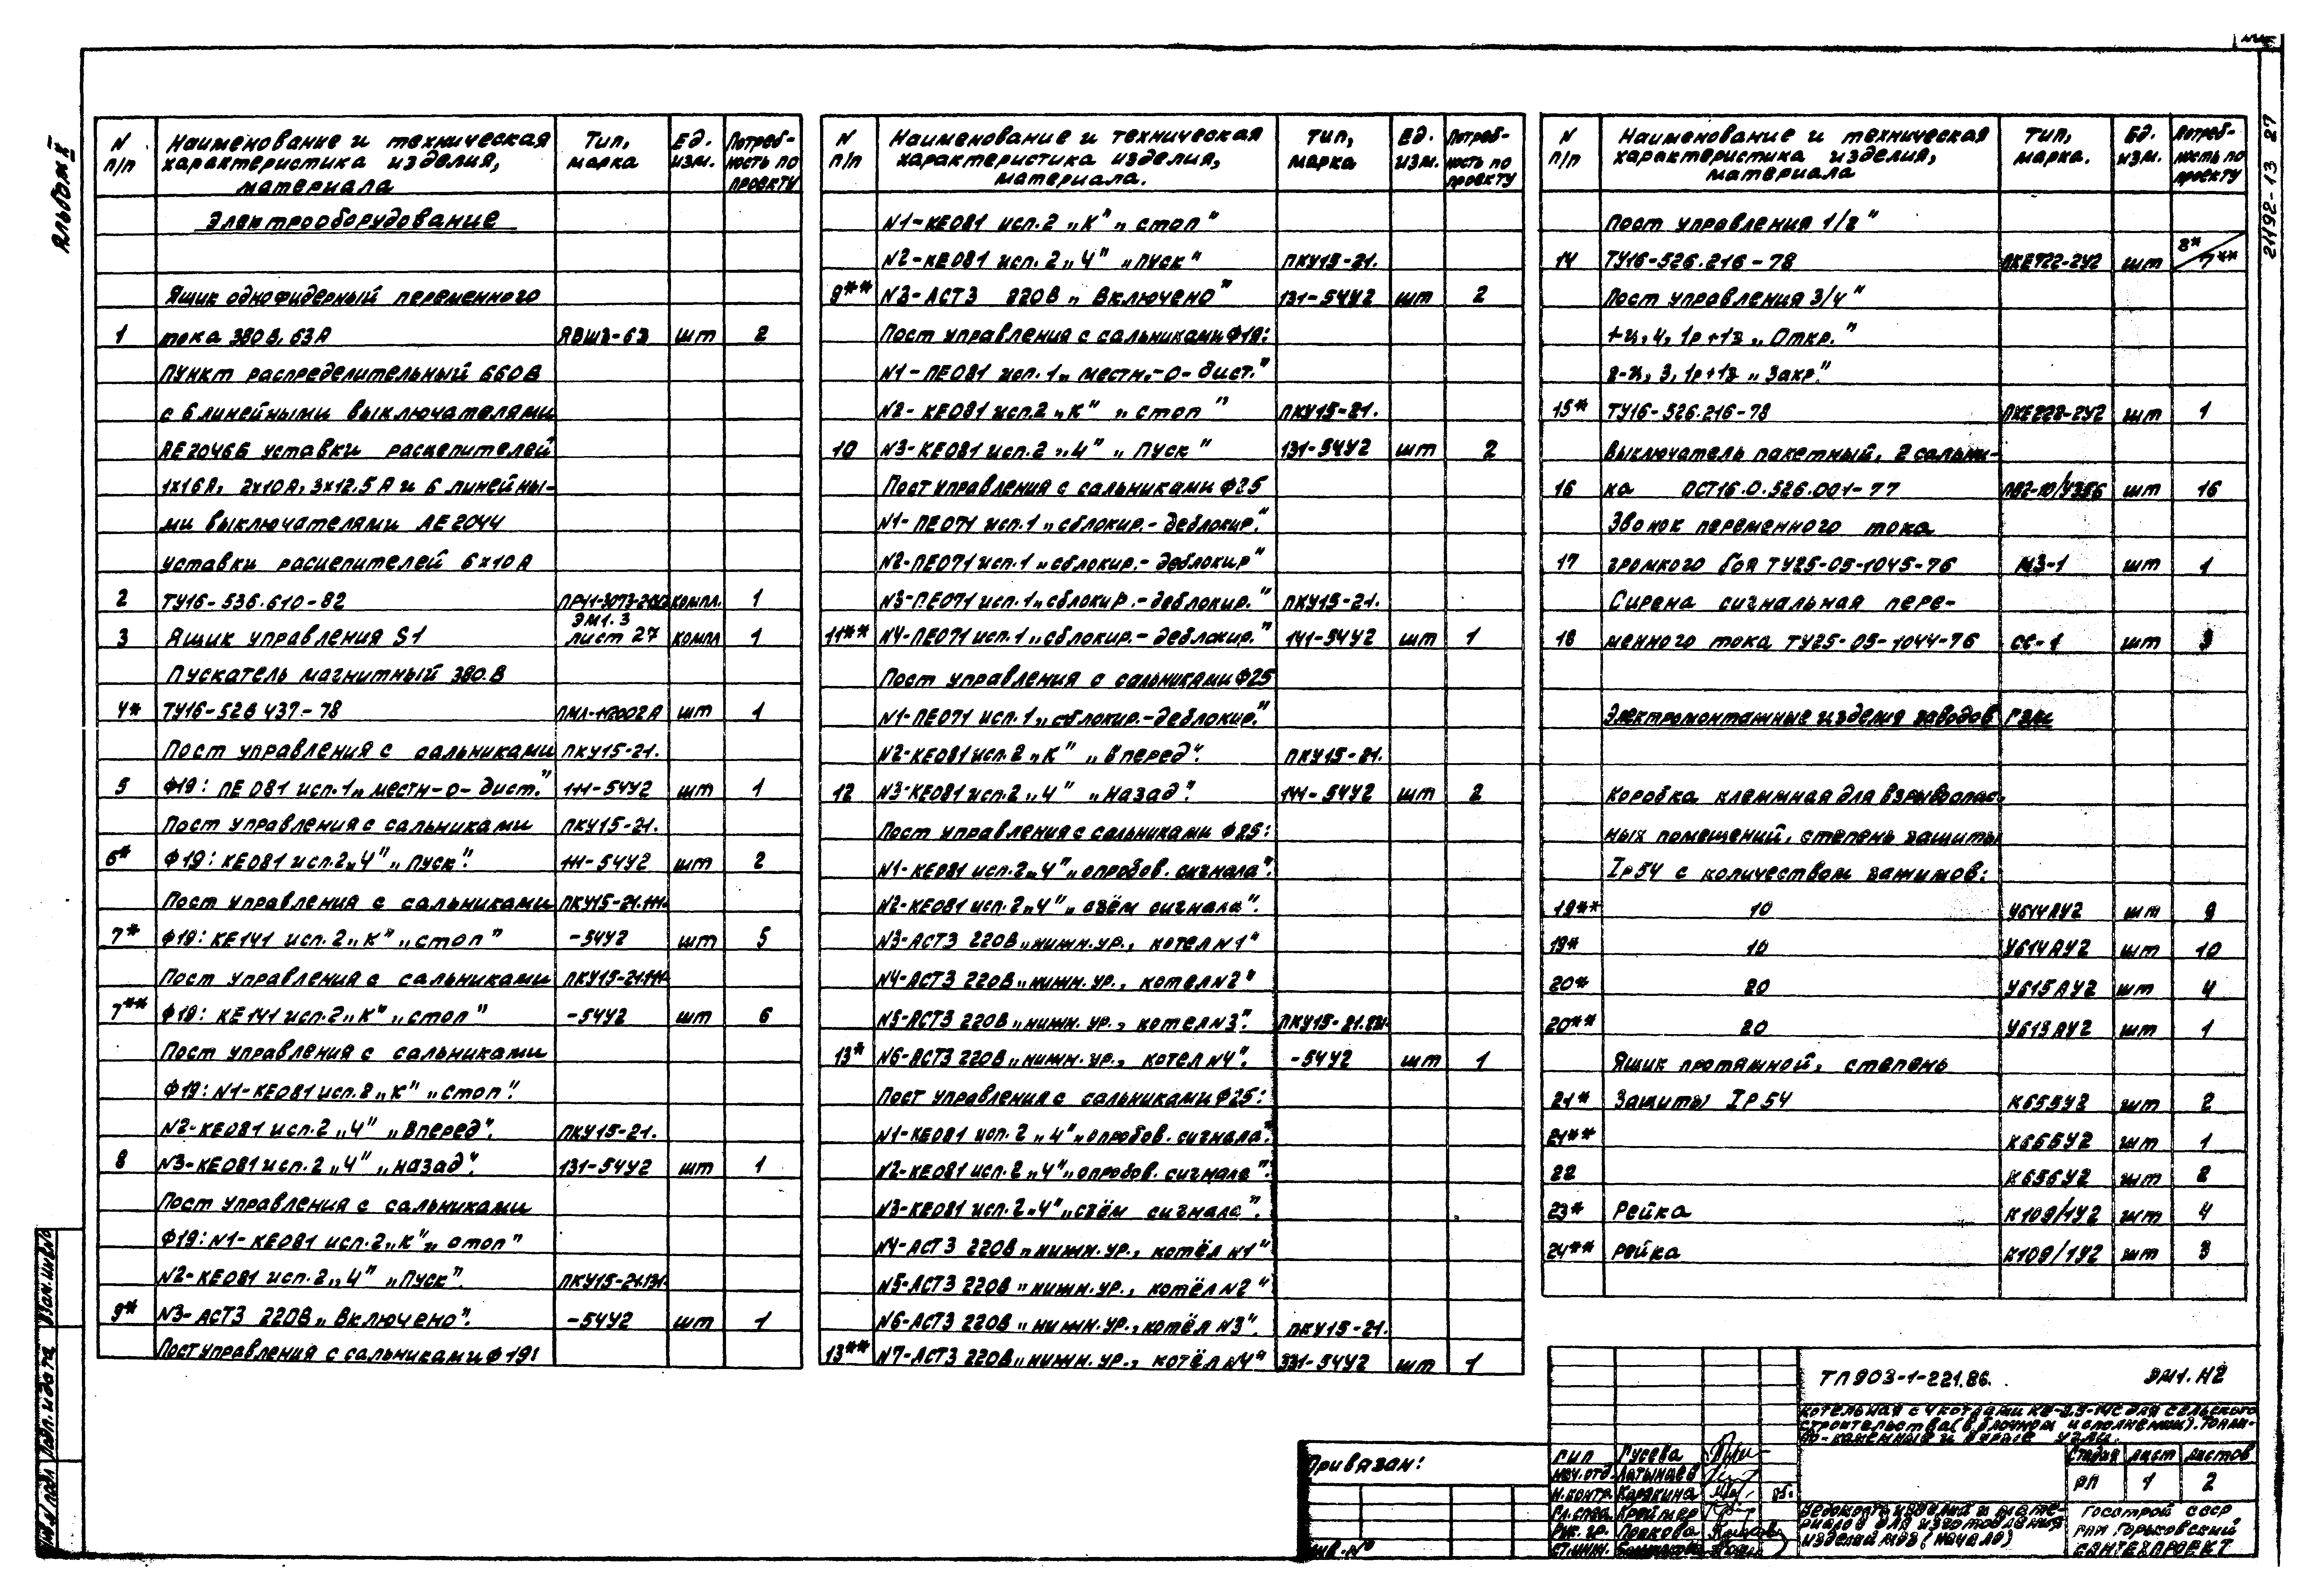 Альбом X
21192-13 27
N п/п | Наименование и техническая характеристика изделия, материала | Тип, марка | Ед. изм. | Потреб-ность по проекту
Электрооборудование
Ящик однофидерный переменного
1 тока 380В, 63А ЯВШ3-63 шт 2
Пункт распределительный 660В
с 6 линейными выключателями
АЕ2046Б уставки расцепителей
1х16А, 2х10А, 3х12.5А и 6 линейны-
ми выключателями АЕ2044
уставки расцепителей 6х10А
2 ТУ16-536.610-82 компл. 1
ЭМ1.3
3 Ящик управления S1 лист 27 компл 1
Пускатель магнитный 380.В
4* ТУ16-526 437-78 шт 1
Пост управления с сальниками ПКУ15-21.
5 Ф19: ПЕ081 исп.1 „местн-о-дист." 111-54У2 шт 1
Пост управления с сальниками ПКУ15-21.
6* Ф19: КЕ081 исп.2„Ч" „Пуск". 111-54У2 шт 2
Пост управления с сальниками ПКУ15-21.111-
7* Ф19: КЕ141 исп. 2„К" „стоп" -54У2 шт 5
Пост управления с сальниками ПКУ15-21.111-
7** Ф19: КЕ141 исп.2„К" „стоп" -54У2 шт 6
Пост управления с сальниками
Ф19: N1-КЕ081 исп.2„К" „Стоп".
N2-КЕ081 исп.2 „Ч" „Вперед". ПКУ15-21.
8 N3-КЕ081 исп.2 „Ч" „назад". 131-54У2 шт 1
Пост управления с сальниками
Ф19: N1-КЕ081 исп.2„К" „стоп"
N2-КЕ081 исп.2„Ч" „Пуск". ПКУ15-21.131-
9* N3-АСТ3 220В „Включено". -54У2 шт 1
Пост управления с сальниками Ф19:
N п/п | Наименование и техническая характеристика изделия, материала. | Тип, марка | Ед. изм. | Потреб-ность по проекту
N1-КЕ081 исп.2 „К" „стоп"
N2-КЕ081 исп. 2„Ч" „Пуск" ПКУ15-21.
9** N3-АСТ3 220В „Включено" 131-54У2 шт 2
Пост управления с сальниками Ф19:
N1-ПЕ081 исп.1„местн.-о-дист."
N2-КЕ081 исп.2„К" „стоп" ПКУ15-21.
10 N3-КЕ081 исп.2 „Ч" „Пуск" 131-54У2 шт 2
Пост управления с сальниками Ф25
N1-ПЕ071 исп.1 „сблокир.-деблокир."
N2-ПЕ071 исп.1 „сблокир.-деблокир"
N3-ПЕ071 исп.1„сблокир.-деблокир." ПКУ15-21.
11** N4-ПЕ071 исп.1 „сблокир.-деблокир." 141-54У2 шт 1
Пост управления с сальниками Ф25
N1-ПЕ071 исп.1„сблокир.-деблокир."
N2-КЕ081 исп.2„К" „Вперед". ПКУ15-21.
12 N3-КЕ081 исп.2„Ч" „Назад". 141-54У2 шт 2
Пост управления с сальниками Ф25:
N1-КЕ081 исп.2„Ч" „опробов. сигнала".
N2-КЕ081 исп.2„Ч" „съём сигнала".
N3-АСТ3 220В „нижн.ур., котел N1"
N4-АСТ3 220В „нижн.ур., котел N2"
N5-АСТ3 220В „нижн. ур., котел N3". ПКУ15-21.
13* N6-АСТ3 220В „нижн.ур., котел N4". -54У2 шт 1
Пост управления с сальниками Ф25:
N1-КЕ081 исп. 2 „Ч" „опробов. сигнала".
N2-КЕ081 исп.2 „Ч" „опробов. сигнала".
N3-КЕ081 исп.2„Ч" „съём сигнала".
N4-АСТ3 220В „нижн.ур., котёл N1"
N5-АСТ3 220В „нижн.ур., котёл N2"
N6-АСТ3 220В „нижн.ур., котёл N3". ПКУ15-21.
13** N7-АСТ3 220В „нижн.ур., котёл N4" 331-54У2 шт 1
N п/п | Наименование и техническая характеристика изделия, материала | Тип, марка. | Ед. изм. | Потреб-ность по проекту
Пост управления 1/2"
14 ТУ16-526.216-78 ПКЕ722-2У2 шт 8*/7**
Пост управления 3/4"
1-ц, Ч, 1р+1з „Откр."
2-ц, 3, 1р+1з „Закр."
15* ТУ16-526.216-78 шт 1
Выключатель пакетный, 2 сальни-
16 ка ОСТ16.0.526.001-77 шт 16
Звонок переменного тока
17 громкого боя ТУ25-05-1045-76 МЗ-1 шт 1
Сирена сигнальная пере-
18 менного тока ТУ25-05-1044-76 СС-1 шт 3
Электромонтажные изделия заводов ГЭМ
Коробка клеммная для взрывоопас-
ных помещений, степень защиты
Ip54 с количеством зажимов:
19** 10 У614АУ2 шт 9
19* 10 У614АУ2 шт 10
20* 20 У615АУ2 шт 4
20** 20 У615АУ2 шт 1
Ящик протяжной, степень
21* Защиты Ip54 К655У2 шт 2
21** шт 1
22 К656У2 шт 2
23* Рейка К109/1У2 шт 4
24** Рейка К109/1У2 шт 3
ТП903-1-221.86. ЭМ1.Н2
Котельная с 4 котлами КЕ-2,5-14С для сельского
строительства (в блочном исполнении). Топли-
во-каменные и бурые угли.
Стадия лист листов
РП 1 2
Ведомость изделий и мате-
риалов для изготовления
изделий МЭЗ (начало)
Госстрой СССР
ГПИ Горьковский
САНТЕХПРОЕКТ
Привязан:
Инв.№
ГИП Гусева
Нач.отд. Латынцев
Н.контр. Карякина 85.
Гл.спец. Крейтер
Рук.гр. Полкова
Ст.инж.
Инв.№ подл. Подп. и дата Взам.инв.№